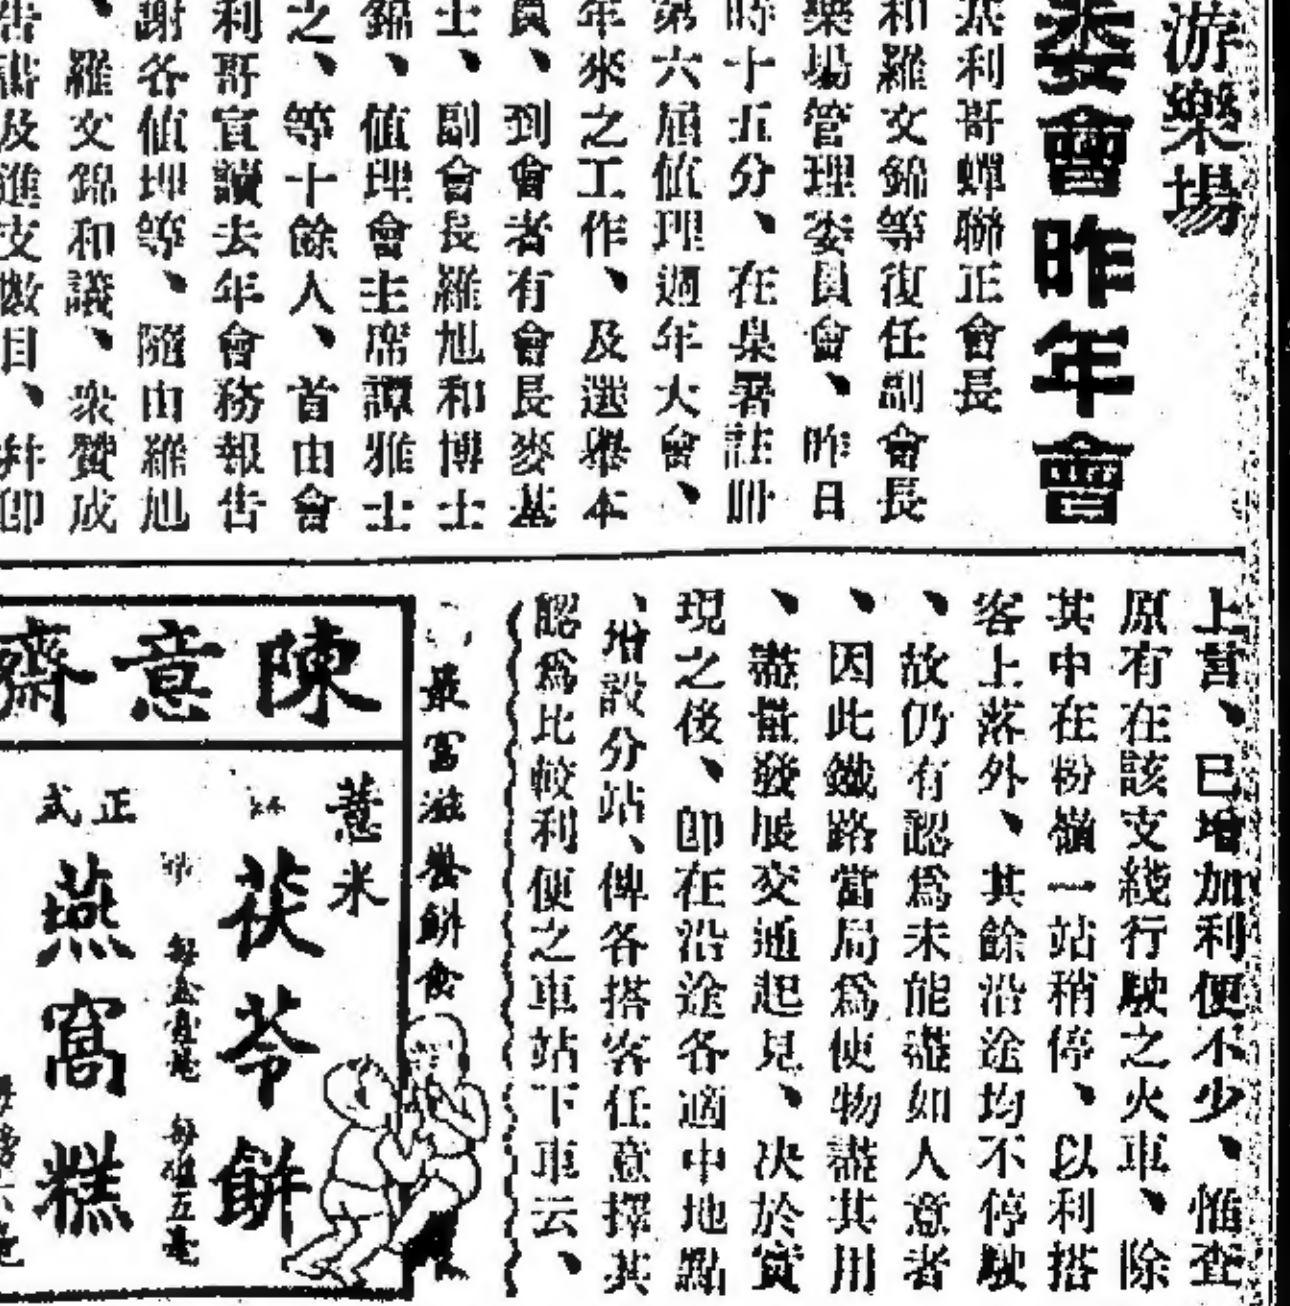 游樂場
委會昨年會
基利哥蟬聯正會長
和羅文錦等復任副會長
樂場管理委員會、昨日
時十五分、在臬署註冊
第六屆值理週年大會、
年來之工作、及選舉本
員、到會者有會長麥基
士、副會長羅旭和博士
錦、值理會主席譚雅士
之、等十餘人、首由會
利哥宣讀去年會務報告
謝各值理等、隨由羅旭
、羅文錦和議、衆贊成
告書及進支數目、幷卽
上言、已增加利便不少、惟查
原有在該支綫行駛之火車、除
其中在粉嶺一站稍停、以利搭
客上落外、其餘沿途均不停駛
、故仍有認爲未能盡如人意者
、因此鐵路當局爲使物盡其用
、盡量發展交通起見、决於實
現之後、卽在沿途各適中地點
、增設分站、俾各搭客任意擇其
認爲比較利便之車站下車云、
最富滋養餅食
陳意齋
薏米
茯苓餅
每盒壹毫 每磅五毫
正式
燕窩糕